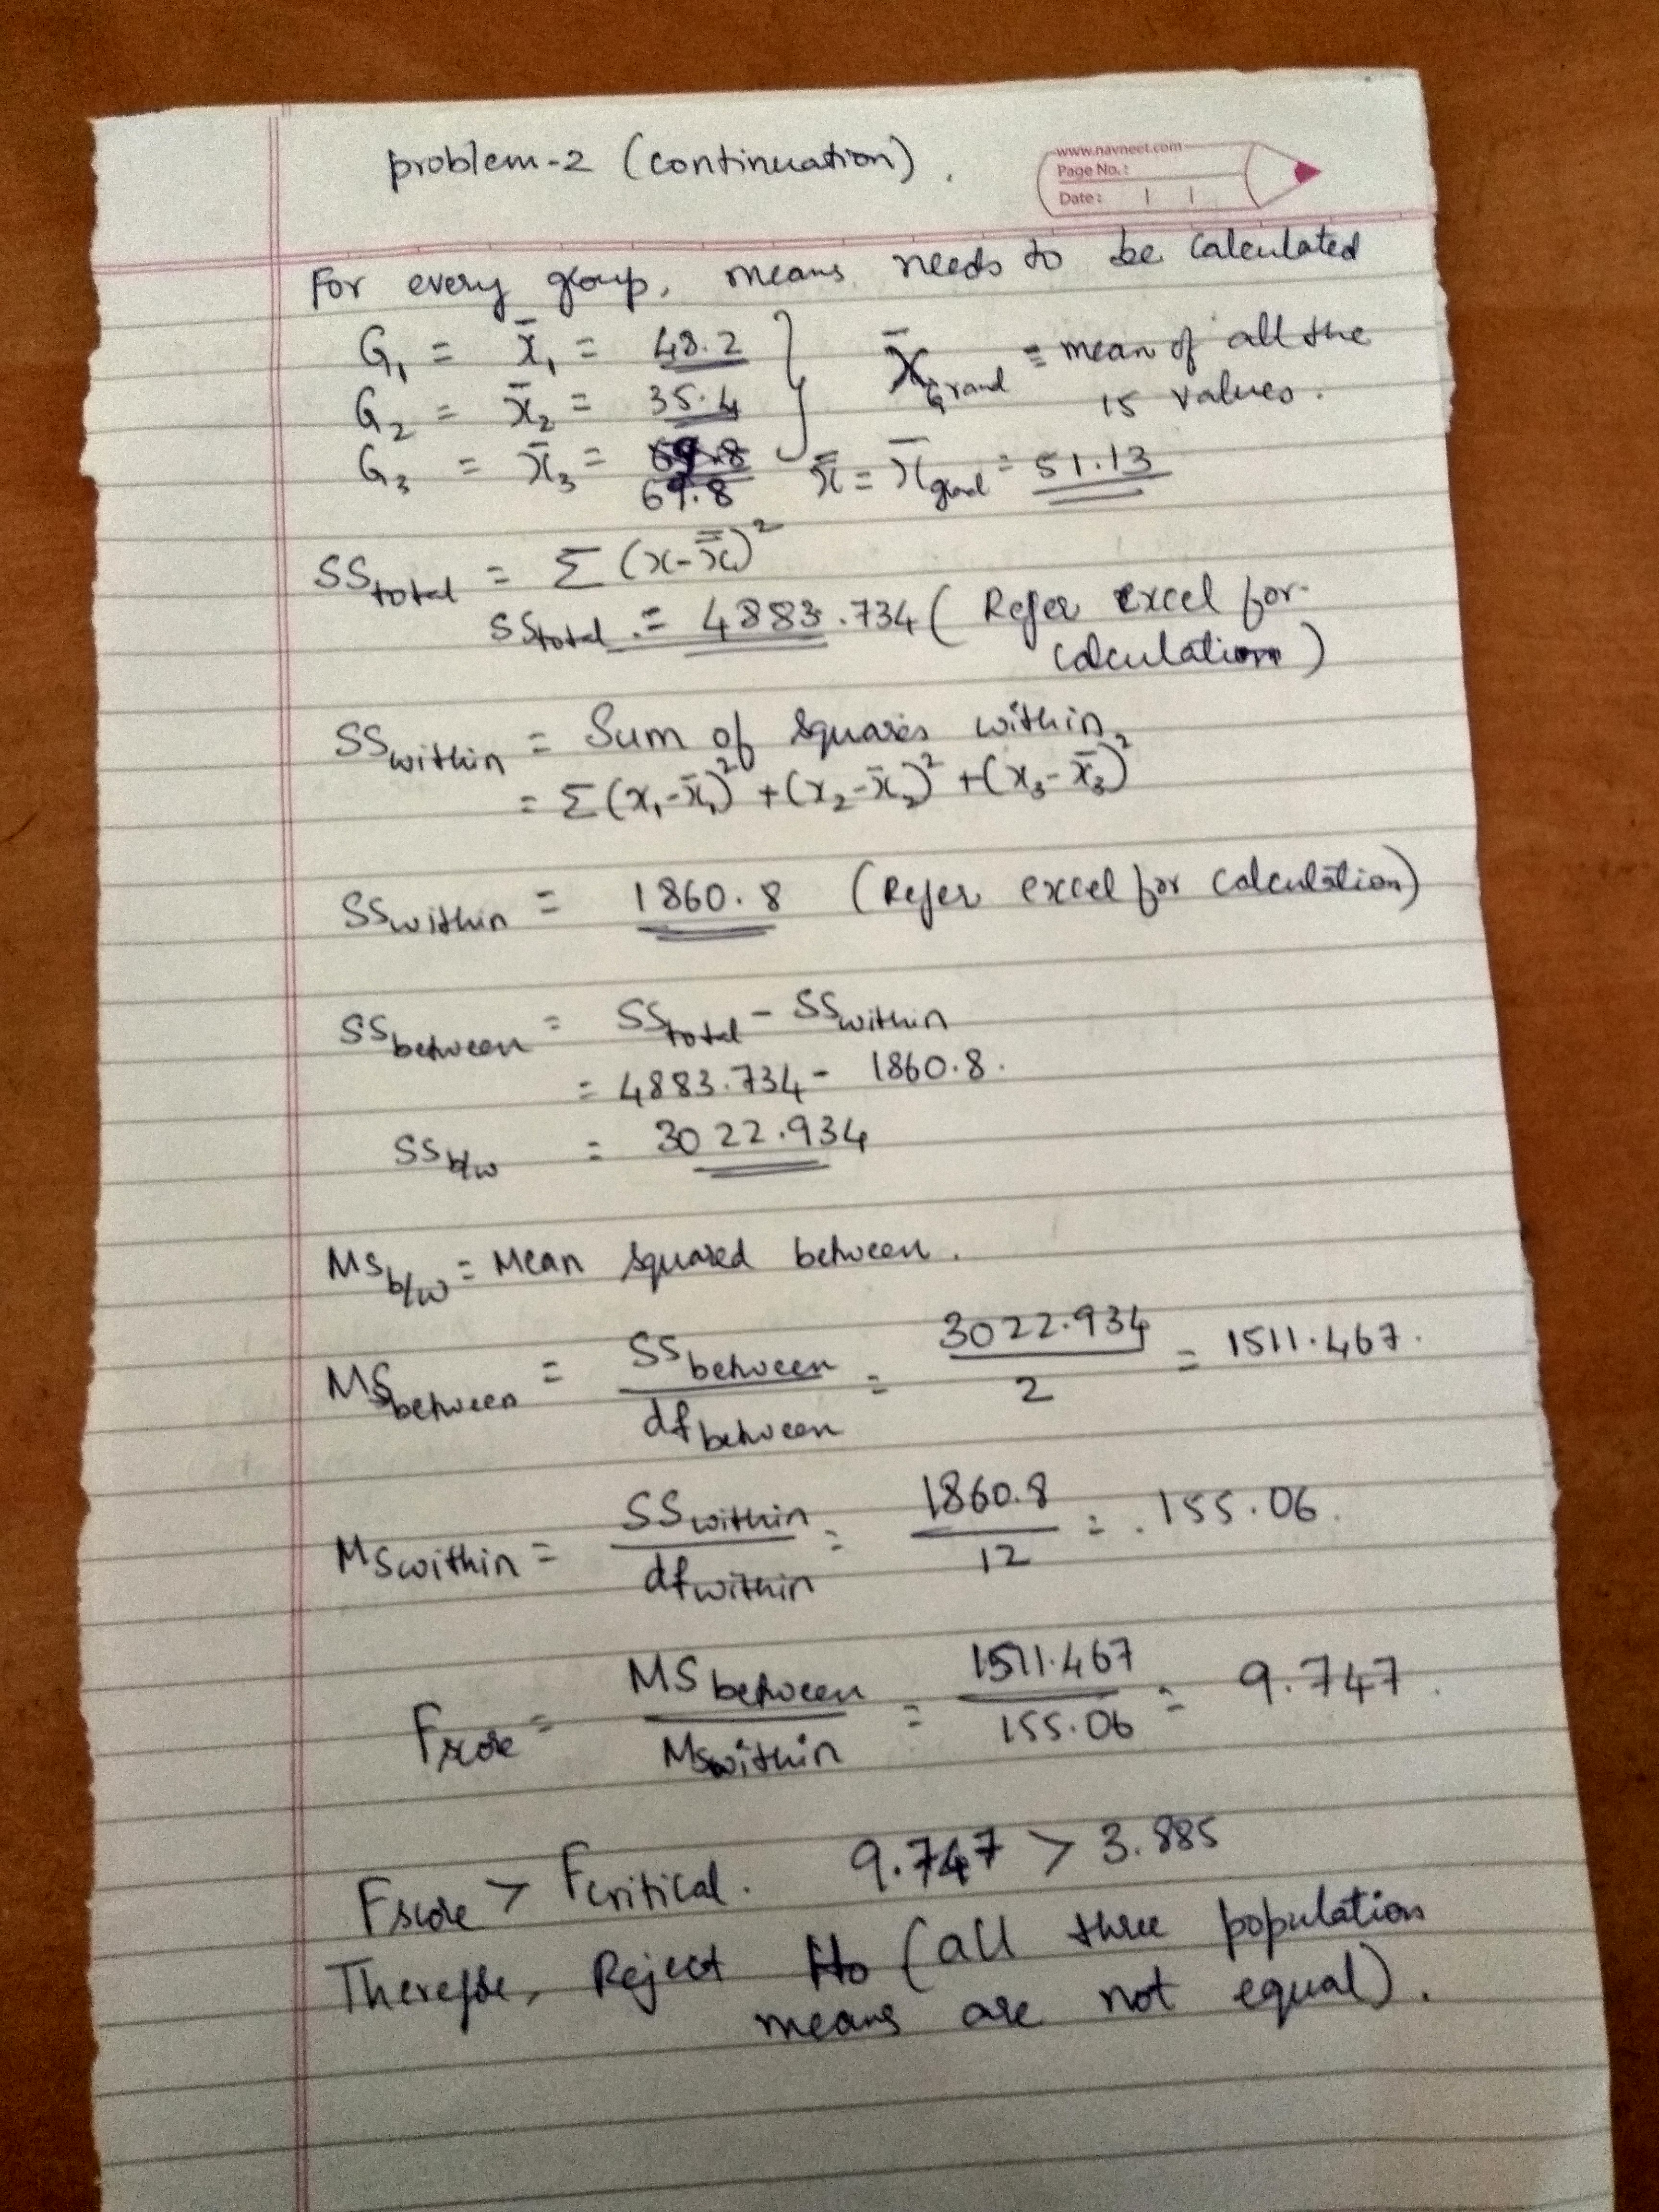 problem-2 (continuation).
www.navneet.com
Page No.:
Date:
For every group, means needs to be calculated
G₁ = x̄₁ = 48.2
G₂ = x̄₂ = 35.4
G₃ = x̄₃ = 69.8
X̄Grand = mean of all the
15 values.
x̿ = x̄grand = 51.13
SStotal = Σ(x-x̿)²
SStotal = 4883.734 (Refer excel for
calculation)
SSwithin = Sum of squares within
= Σ(x₁-x̄₁)² + (x₂-x̄₂)² + (x₃-x̄₃)²
SSwithin = 1860.8 (Refer excel for calculation)
SSbetween = SStotal - SSwithin
= 4883.734 - 1860.8.
SSb/w = 3022.934
MSb/w = Mean squared between.
MSbetween = SSbetween / dfbetween = 3022.934 / 2 = 1511.467.
MSwithin = SSwithin / dfwithin = 1860.8 / 12 = 155.06.
Fscore = MSbetween / MSwithin = 1511.467 / 155.06 = 9.747.
Fscore > Fcritical. 9.747 > 3.885
Therefore, Reject Ho (all three population
means are not equal).